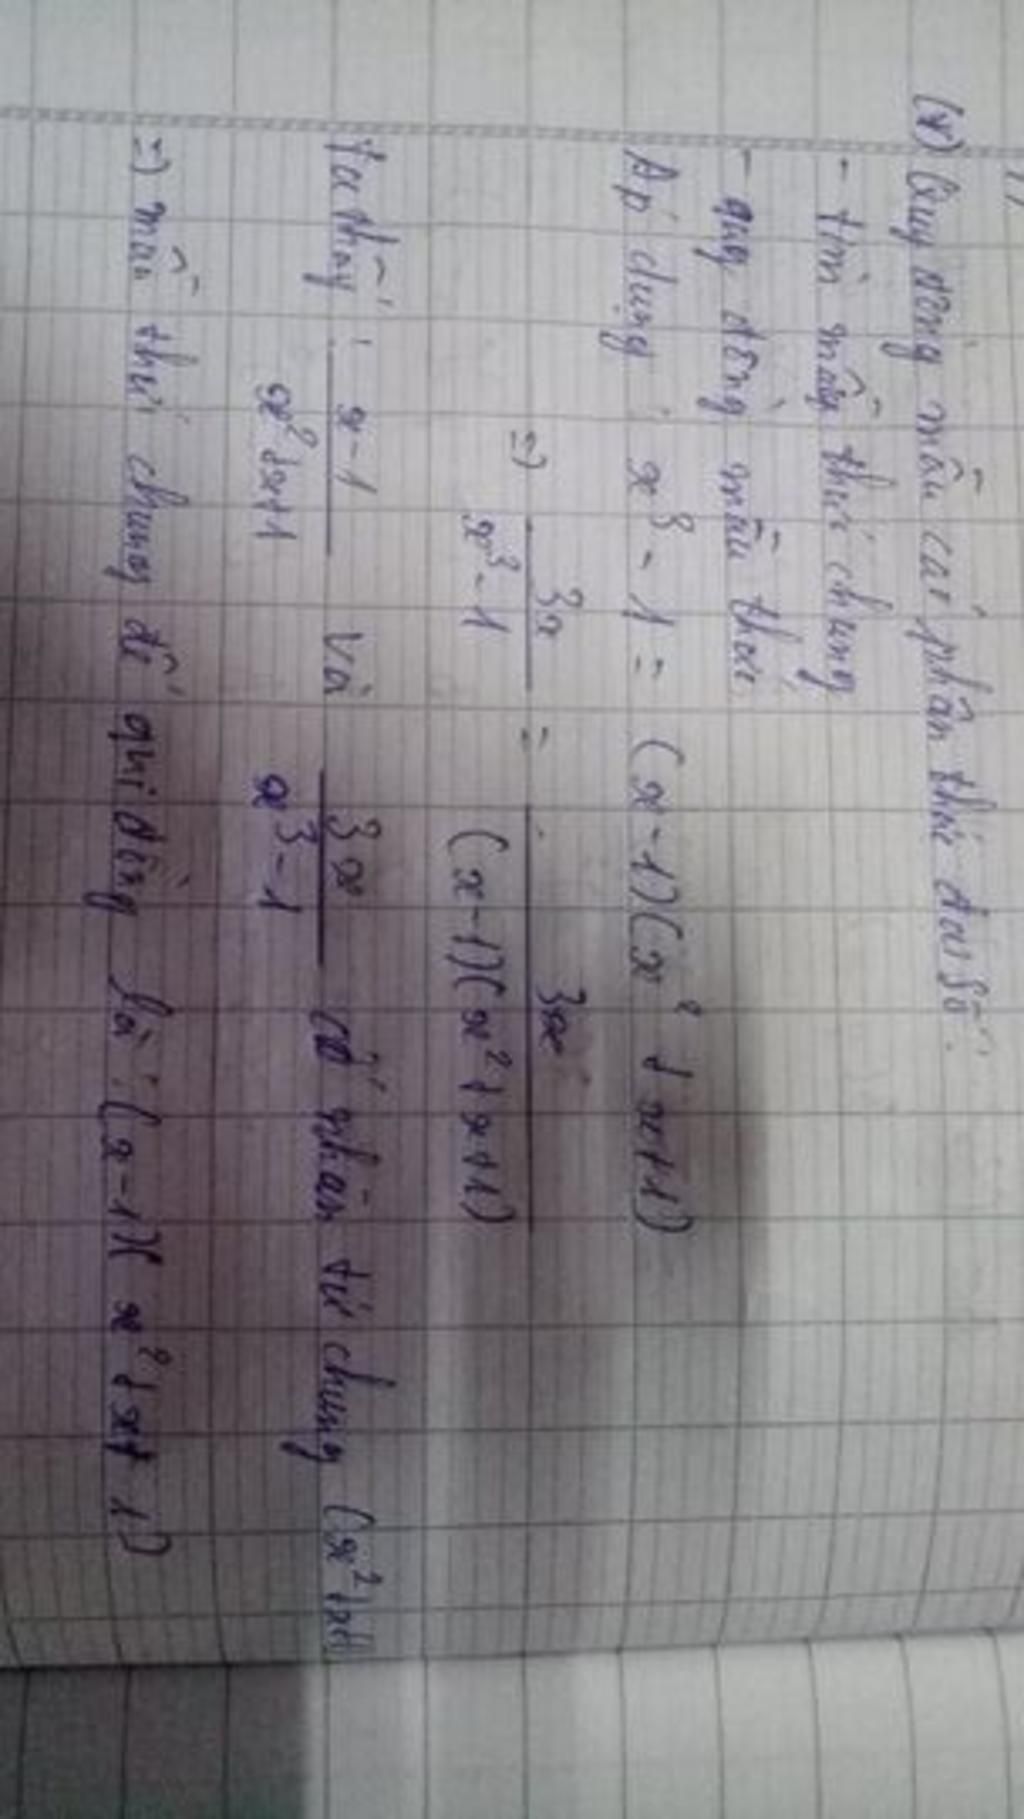 (*) Quy đồng mẫu các phân thức đại số.
- tìm mẫu thức chung
- quy đồng mẫu thức
Áp dụng : x³ - 1 = (x-1)(x² + x+1)
=) 3x / x³-1 = 3x / (x-1)(x²+x+1)
Ta thấy : x-1 / x²+x+1 và 3x / x³-1 có nhân tử chung (x²+x+1)
=) mẫu thức chung để qui đồng là : (x-1)(x²+x+1)